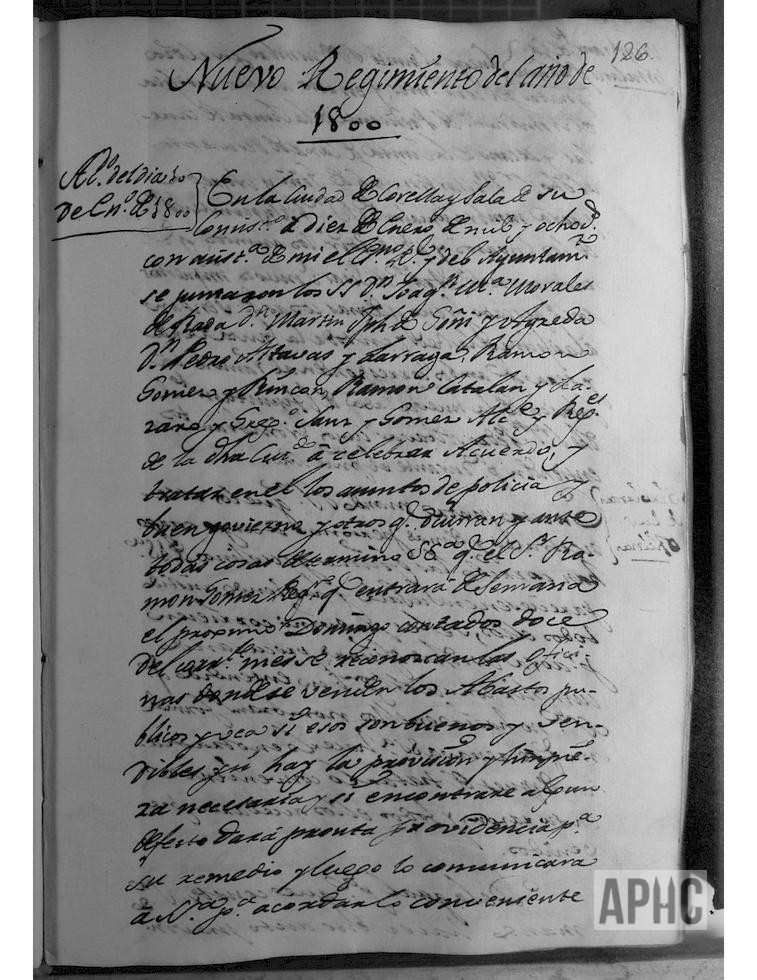 126.
Nuevo Regimiento del año de
1800
A.do del dia 10
de En.o de 1800
En la Ciudad de Corella y Sala de su
Consist.o a diez de Enero de mil y ochoc.s
con asist.a de mi el es.no R.l y del Ayuntam.to
se juntaron los SS D.n Joaq.n M.a Morales
de Rada D.n Martin Jph de Goñi y Agreda
D.n Pedro Alavas y Larraga, Ramon
Gomez y Rincon, Ramon Catalan y La-
zaro y Greg.o Sanz y Gomez Alc.e y Reg.es
de la dha Ciu.d â celebrar Acuerdo, y
tratar en el los asuntos de policia y
buen govierno y otros q.e ocurran y ante
todas cosas determino SS.a q.e el S.r Ra-
mon Gomez Reg.r q.e entrará de Semana
el proximo Domingo contados doce
del corr.te mes se reconozcan las ofici-
nas donde se venden los Abastos pu-
blicos y vea si esos son buenos y ven-
dibles y si hay la provision y limpie-
za necesaria y si encontrare algun
defecto dará pronta providencia p.a
su remedio y luego lo comunicará
â S.S.a p.a acordar lo conveniente
APHC